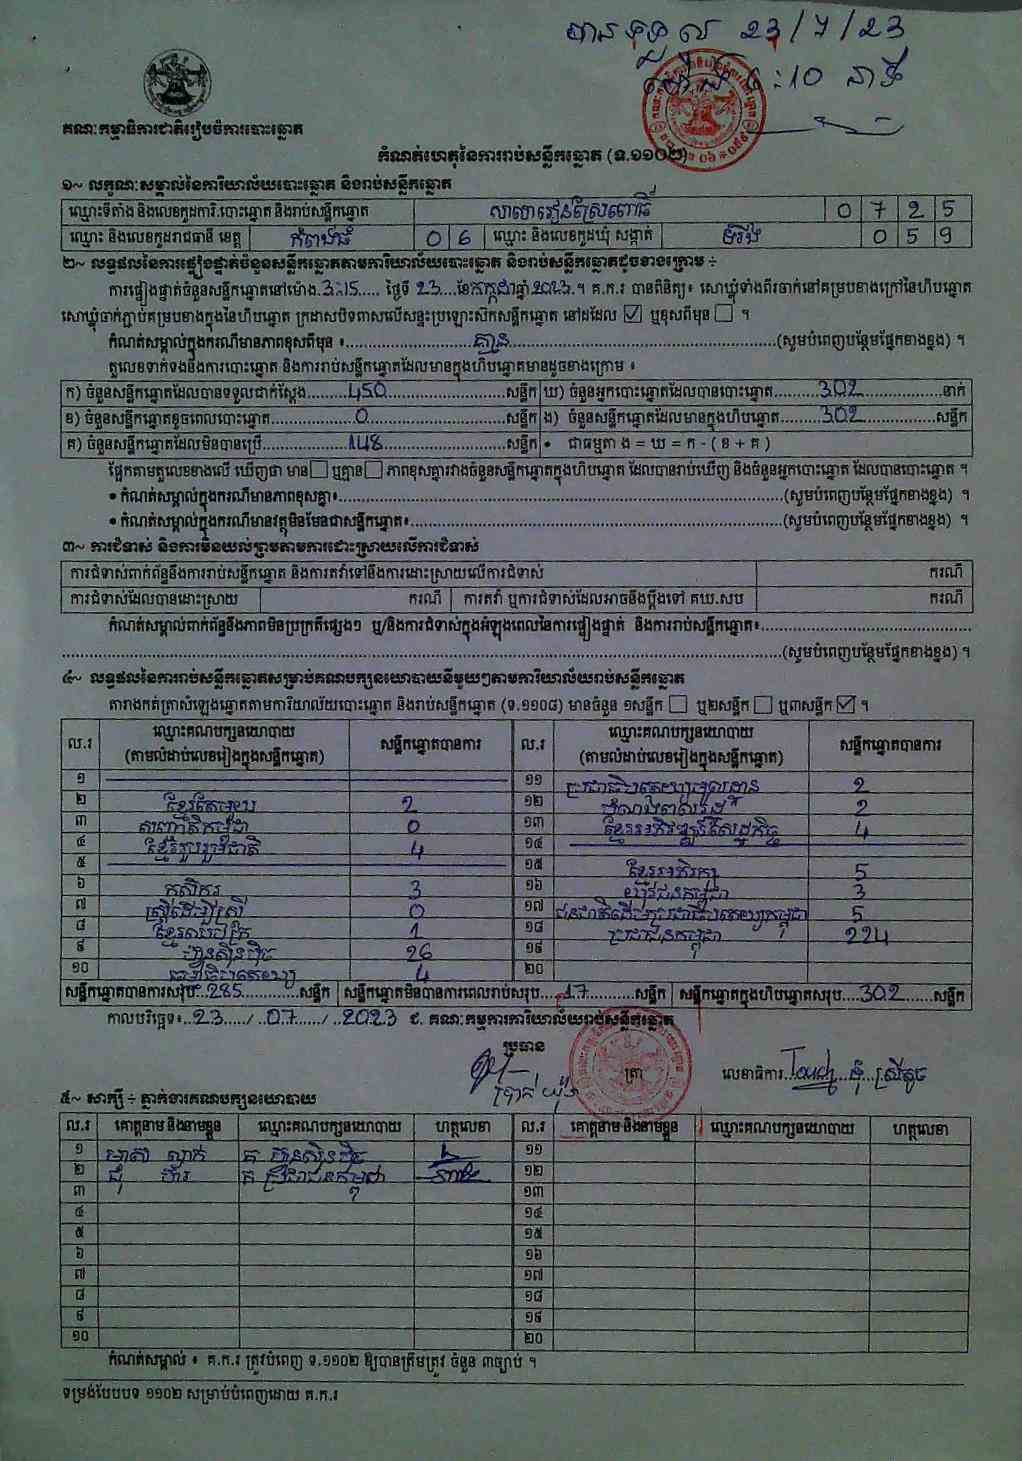 បានទទួល 23/7/23
៖10 នាទី
គណៈកម្មាធិការជាតិរៀបចំការបោះឆ្នោត
កំណត់ហេតុនៃការរាប់សន្លឹកឆ្នោត (ទ.១១០២)
១~ លក្ខណៈសម្គាល់នៃការិយាល័យបោះឆ្នោត និងរាប់សន្លឹកឆ្នោត
ឈ្មោះទីតាំង និងលេខកូដការិ.បោះឆ្នោត និងរាប់សន្លឹកឆ្នោត សាលារៀនស្រែពោធិ៍ 0 7 2 5
ឈ្មោះ និងលេខកូដរាជធានី ខេត្ត កំពង់ធំ 0 6 ឈ្មោះ និងលេខកូដឃុំ សង្កាត់ ទំរីង 0 5 9
២~ លទ្ធផលនៃការផ្ទៀងផ្ទាត់ចំនួនសន្លឹកឆ្នោតតាមការិយាល័យបោះឆ្នោត និងរាប់សន្លឹកឆ្នោតដូចខាងក្រោម ÷
ការផ្ទៀងផ្ទាត់ចំនួនសន្លឹកឆ្នោតនៅម៉ោង.3:15...., ថ្ងៃទី 23...ខែកក្កដាឆ្នាំ 2023.។ គ.ក.រ បានពិនិត្យ៖ សោឃ្លុំទាំងពីរចាក់នៅគម្របខាងក្រៅនៃហិបឆ្នោត
សោឃ្លុំចាក់ភ្ជាប់គម្របខាងក្នុងនៃហិបឆ្នោត ក្រដាសបិទពាសលើសន្ទះប្រឡោះស៊កសន្លឹកឆ្នោត នៅដដែល ☑ ឬខុសពីមុន ☐ ។
កំណត់សម្គាល់ក្នុងករណីមានភាពខុសពីមុន ៖........គ្មាន........(សូមបំពេញបន្ថែមផ្នែកខាងខ្នង) ។
តួលេខទាក់ទងនឹងការបោះឆ្នោត និងការរាប់សន្លឹកឆ្នោតដែលមានក្នុងហិបឆ្នោតមានដូចខាងក្រោម ៖
ក) ចំនួនសន្លឹកឆ្នោតដែលបានទទួលជាក់ស្តែង........450........សន្លឹក ឃ) ចំនួនអ្នកបោះឆ្នោតដែលបានបោះឆ្នោត........302........នាក់
ខ) ចំនួនសន្លឹកឆ្នោតខូចពេលបោះឆ្នោត........0........សន្លឹក ង) ចំនួនសន្លឹកឆ្នោតដែលមានក្នុងហិបឆ្នោត........302........សន្លឹក
គ) ចំនួនសន្លឹកឆ្នោតដែលមិនបានប្រើ........148........សន្លឹក • ជាធម្មតា ង = ឃ = ក - ( ខ + គ )
ផ្អែកតាមតួលេខខាងលើ ឃើញថា មាន ☐ ឬគ្មាន ☐ ភាពខុសគ្នារវាងចំនួនសន្លឹកឆ្នោតក្នុងហិបឆ្នោត ដែលបានរាប់ឃើញ និងចំនួនអ្នកបោះឆ្នោត ដែលបានបោះឆ្នោត ។
• កំណត់សម្គាល់ក្នុងករណីមានភាពខុសគ្នា៖........(សូមបំពេញបន្ថែមផ្នែកខាងខ្នង) ។
• កំណត់សម្គាល់ក្នុងករណីមានវត្ថុមិនមែនជាសន្លឹកឆ្នោត៖........(សូមបំពេញបន្ថែមផ្នែកខាងខ្នង) ។
៣~ ការជំទាស់ និងការមិនយល់ព្រមតាមការដោះស្រាយលើការជំទាស់
ការជំទាស់ពាក់ព័ន្ធនឹងការរាប់សន្លឹកឆ្នោត និងការតវ៉ាទៅនឹងការដោះស្រាយលើការជំទាស់ ករណី
ការជំទាស់ដែលបានដោះស្រាយ ករណី ការតវ៉ា ឬការជំទាស់ដែលអាចនឹងប្តឹងទៅ គឃ.សប ករណី
កំណត់សម្គាល់ពាក់ព័ន្ធនឹងភាពមិនប្រក្រតីផ្សេងៗ ឬ/និងការជំទាស់ក្នុងអំឡុងពេលនៃការផ្ទៀងផ្ទាត់ និងការរាប់សន្លឹកឆ្នោត៖........
........(សូមបំពេញបន្ថែមផ្នែកខាងខ្នង) ។
៤~ លទ្ធផលនៃការរាប់សន្លឹកឆ្នោតសម្រាប់គណបក្សនយោបាយនីមួយៗតាមការិយាល័យរាប់សន្លឹកឆ្នោត
តារាងកត់ត្រាសំឡេងឆ្នោតតាមការិយាល័យបោះឆ្នោត និងរាប់សន្លឹកឆ្នោត (ទ.១១០៨) មានចំនួន ១សន្លឹក ☐ ឬ២សន្លឹក ☐ ឬ៣សន្លឹក ☑ ។
ល.រ ឈ្មោះគណបក្សនយោបាយ (តាមលំដាប់លេខរៀងក្នុងសន្លឹកឆ្នោត) សន្លឹកឆ្នោតបានការ ល.រ ឈ្មោះគណបក្សនយោបាយ (តាមលំដាប់លេខរៀងក្នុងសន្លឹកឆ្នោត) សន្លឹកឆ្នោតបានការ
១ ១១ ប្រជាធិបតេយ្យមូលដ្ឋាន 2
២ ខ្មែរតែមួយ 2 ១២ 2
៣ សញ្ជាតិកម្ពុជា 0 ១៣ ខ្មែរអភិវឌ្ឍន៍សេដ្ឋកិច្ច 4
៤ ខ្មែររួបរួមជាតិ 4 ១៤
៥ ១៥ ខ្មែរអភិរក្ស 5
៦ កសិករ 3 ១៦ យុវជនកម្ពុជា 3
៧ ស្ត្រីដើម្បីស្ត្រី 0 ១៧ ជនជាតិដើមប្រជាធិបតេយ្យកម្ពុជា 5
៨ 1 ១៨ ប្រជាជនកម្ពុជា 224
៩ ហ៊្វុនស៊ិនប៉ិច 26 ១៩
១០ ធម្មាធិបតេយ្យ 4 ២០
សន្លឹកឆ្នោតបានការសរុប...285........សន្លឹក សន្លឹកឆ្នោតមិនបានការពេលរាប់សរុប....17........សន្លឹក សន្លឹកឆ្នោតក្នុងហិបឆ្នោតសរុប....302......សន្លឹក
កាលបរិច្ឆេទ៖..23...../..07....../...2023 ជ. គណៈកម្មការការិយាល័យរាប់សន្លឹកឆ្នោត
ប្រធាន
ត្រា
លេខាធិការ
៥~ សាក្សី ÷ ភ្នាក់ងារគណបក្សនយោបាយ
ល.រ គោត្តនាម និងនាមខ្លួន ឈ្មោះគណបក្សនយោបាយ ហត្ថលេខា ល.រ គោត្តនាម និងនាមខ្លួន ឈ្មោះគណបក្សនយោបាយ ហត្ថលេខា
១ គ ហ៊្វុនស៊ិនប៉ិច ១១
២ គ ប្រជាជនកម្ពុជា ១២
៣ ១៣
៤ ១៤
៥ ១៥
៦ ១៦
៧ ១៧
៨ ១៨
៩ ១៩
១០ ២០
កំណត់សម្គាល់ ៖ គ.ក.រ ត្រូវបំពេញ ទ.១១០២ ឱ្យបានត្រឹមត្រូវ ចំនួន ៣ច្បាប់ ។
ទម្រង់បែបបទ ១១០២ សម្រាប់បំពេញដោយ គ.ក.រ